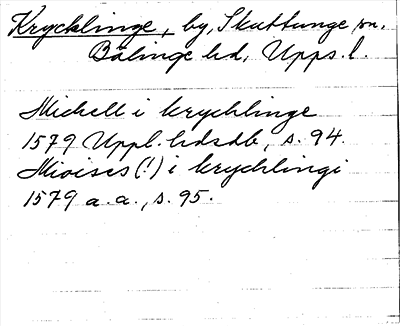 Krycklinge, by, Skuttunge sn,
Bälinge hd, Upps. l.
Michell i krychlinge
1579 Uppl. hdsdb, s. 94.
Mioises (!) i krychlingi
1579 a. a., s. 95.